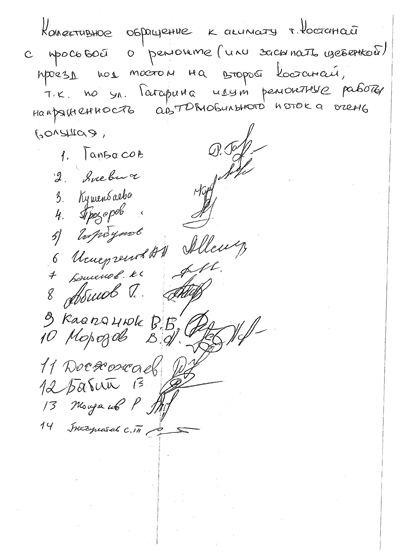 Колективное обращение к акимату г. Костанай
с просьбой о ремонте (или засыпать щебенкой)
проезд под мостом на второй Костанай,
т.к. по ул. Гагарина идут ремонтные работы
напряженность автомобильного потока очень
большая,
1. Гапбасов
2. Яневич
3. Кушенбаева
4. Прозоров
5) Горбунов
6
7
8 Абишов Г.
9 Клапанюк В.Б.
10 Морозов В.
11 Досхожаев
12 Бабий В
13 Р
14